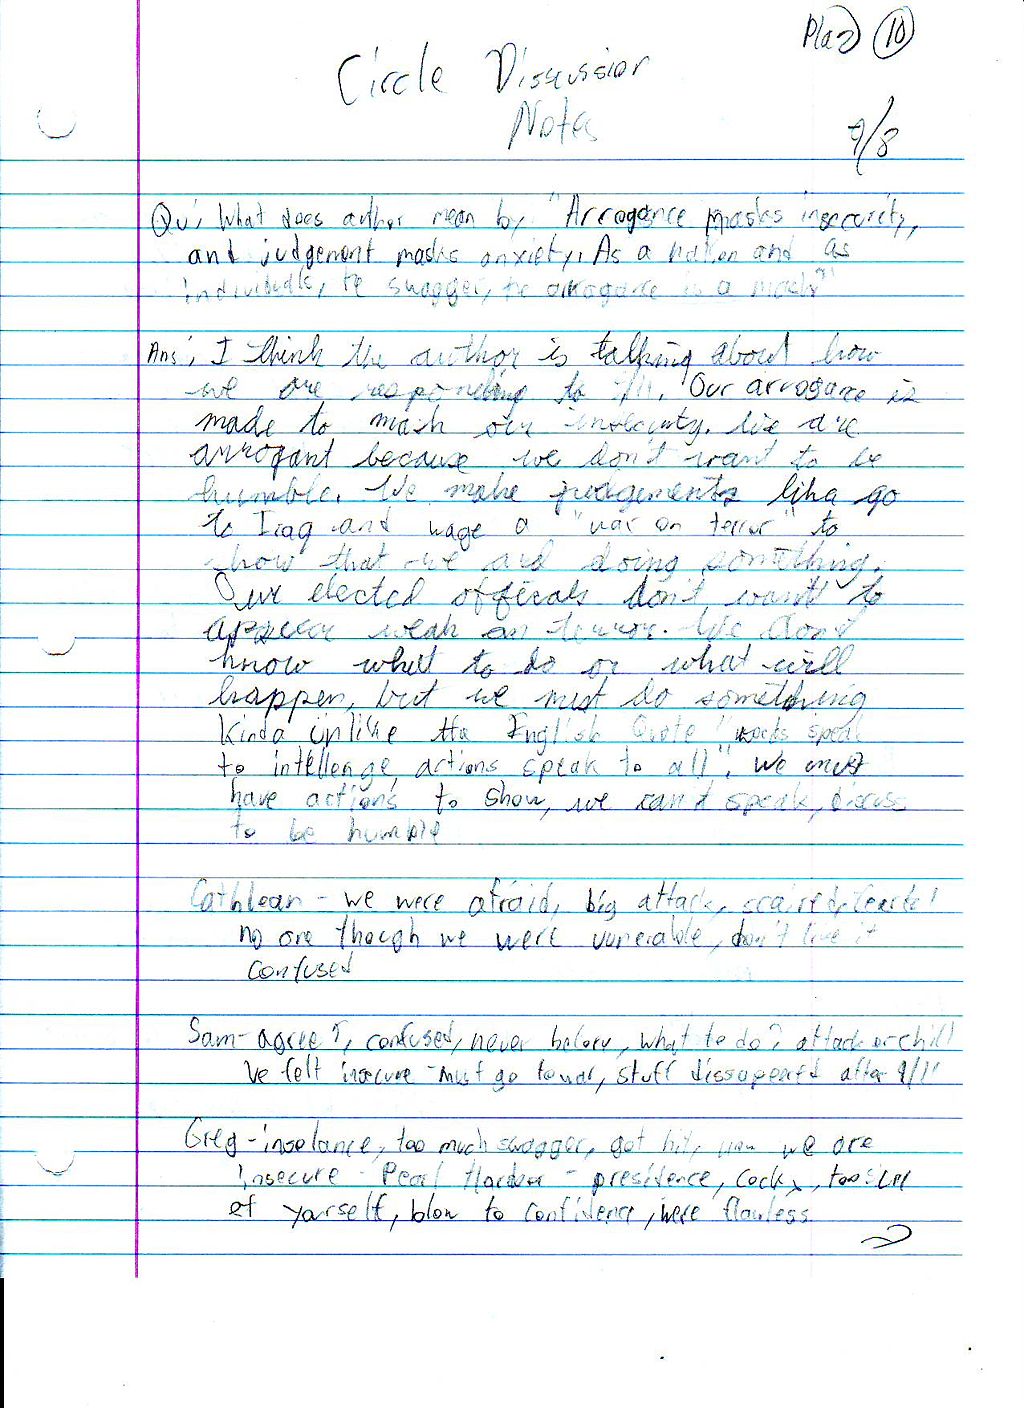 10
Circle Discussion
Notes
9/8
Qu: What does author mean by "Arrogance masks insecurity,
and judgement masks anxiety. As a nation and as
individuals, he swagger, he arrogance is a mask?"
Ans: I think the author is talking about how
we are responding to 9/11. Our arrogance is
made to mask our insecurity. We are
arrogant because we don't want to be
humble. We make judgements like go
to Iraq and wage a "war on terror" to
show that we are doing something.
Our elected officals don't want to
appear weak on terror. We don't
know what to do or what will
happen, but we must do something
Kinda unlike the English Quote "words speak
to intellenge, actions speak to all". We must
have actions to show, we can't speak, discuss
to be humble
Cathlean - we were afraid, big attack, scaired,
no one though we were vunerable, don't
confused
Sam - agree, confused, never before, what to do? attack or chill
We felt insecure - must go to war, stuff dissapeared after 9/11
Greg - insolance, too much swagger, got hit, now we are
insecure - Pearl Harbor - presidence, cocky, too
of yourself, blow to confidence, were flawless